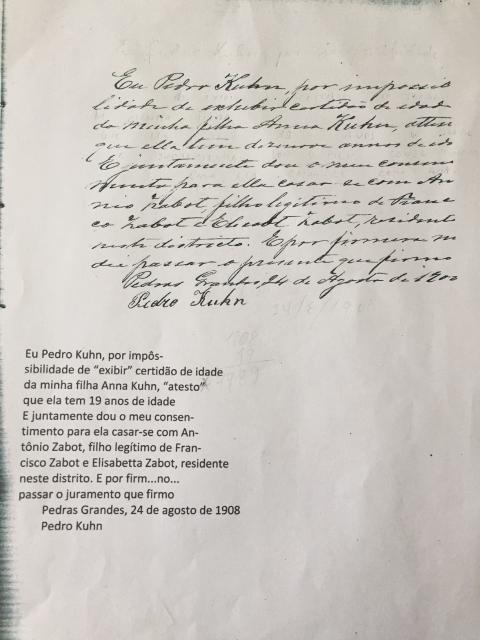 Eu Pedro Kuhn, por impossi
lidade de exhibir certidão de edad
da minha filha Anna Kuhn, attes
que ella tem dezenove annos de id
E juntamente dou o meu consen
mento para ella casar-se com An
nio Zabot, filho legitimo de Franc
co Zabot e Elisabet Zabot, resident
neste districto. E por firmeza m
dei passar o presente que firmo
Pedras Grandes, 24 de Agosto de 190
Pedro Kuhn
1908
19
1889
Eu Pedro Kuhn, por impôs-
sibilidade de “exibir” certidão de idade
da minha filha Anna Kuhn, “atesto”
que ela tem 19 anos de idade
E juntamente dou o meu consen-
timento para ela casar-se com An-
tônio Zabot, filho legítimo de Fran-
cisco Zabot e Elisabetta Zabot, residente
neste distrito. E por firm...no...
passar o juramento que firmo
Pedras Grandes, 24 de agosto de 1908
Pedro Kuhn